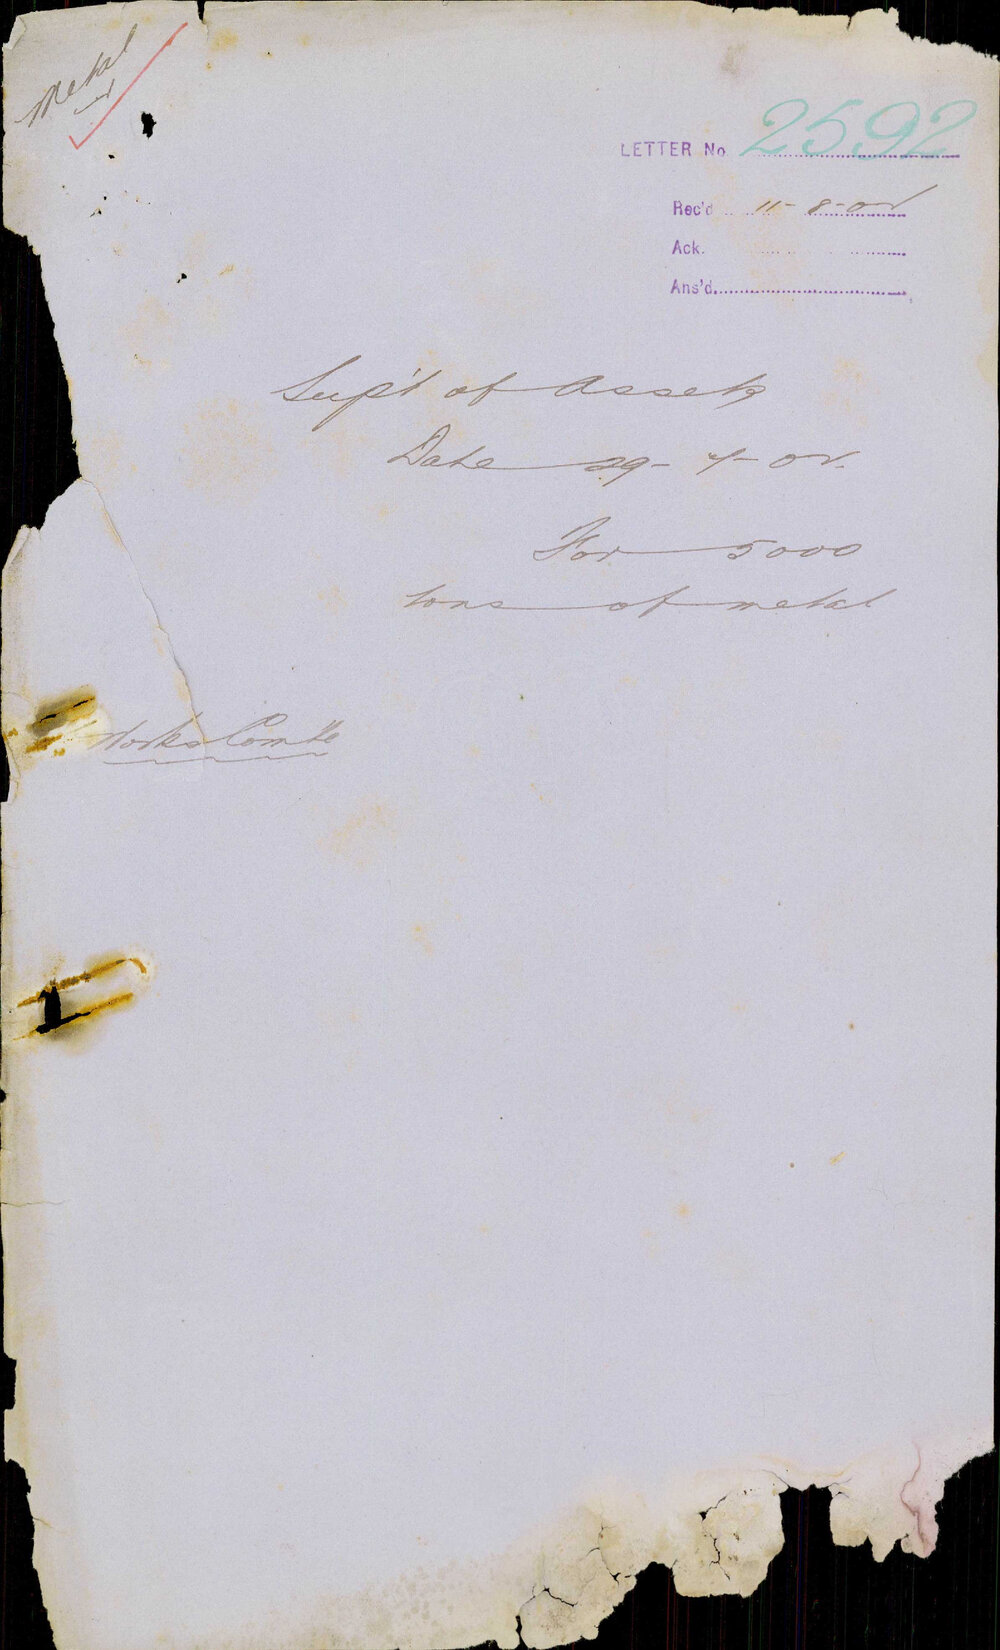 Metal
LETTER No 2592
Rec'd 11-8-02
Ack.
Ans'd
Sup't of Assets
Date 29-7-02.
For 5000
tons of metal
Works Com'tte